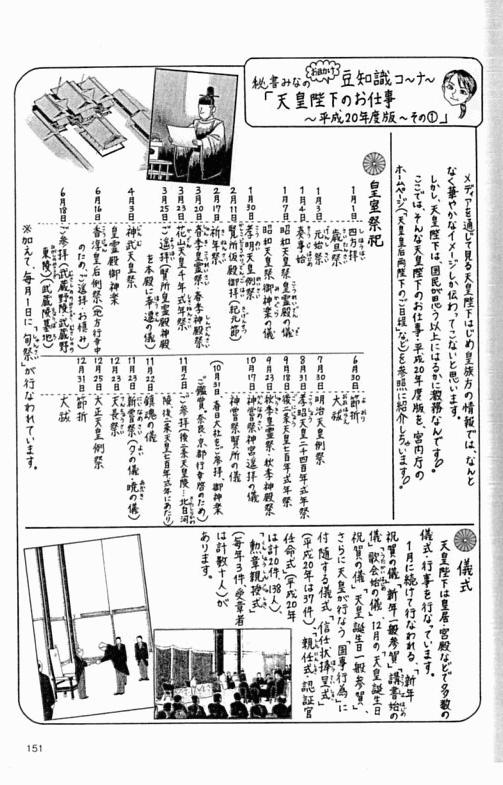 秘書みなの おまけ 豆知識コ〜ナ〜
「天皇陛下のお仕事
〜平成20年度版〜その①」
メディアを通じて見る天皇陛下はじめ皇族方の情報では、なんと
なく華やかなイメージしか伝わってこないと思います。
しかし、天皇陛下は、国民が思う以上にはるかに激務なんです。
ここでは、そんな天皇陛下のお仕事・平成20年度版を、宮内庁の
ホームページ(天皇皇后両陛下のご日程)などを参照に紹介しちゃいます
皇室祭祀
1月1日 四方拝
歳旦祭
1月3日 元始祭
1月4日 奏事始
1月7日 昭和天皇祭 皇霊殿の儀
昭和天皇祭 御神楽の儀
1月30日 孝明天皇例祭
2月11日 賢所仮殿御拝(紀元節)
2月17日 祈年祭
3月20日 春季皇霊祭・春季神殿祭
3月23日 花山天皇千年式年祭
3月25日 ご遥拝(賢所皇霊殿神殿
を本殿に奉遷の儀)
4月3日 神武天皇祭
皇霊殿御神楽
6月16日 香淳皇后例祭(地方行幸中
のためご遥拝・お慎み)
6月18日 ご参拝(武蔵野陵・武蔵野
東陵)(武蔵陵墓地)
6月30日 節折
大祓
7月30日 明治天皇例祭
8月31日 孝昭天皇二千四百年式年祭
9月18日 後二条天皇七百年式年祭
9月23日 秋季皇霊祭・秋季神殿祭
10月17日 神嘗祭神宮遥拝の儀
神嘗祭賢所の儀
(10月31日 春日大社をご参拝 御神楽
ご鑑賞、奈良・京都行幸啓のため)
11月2日 ご参拝(後二条天皇陵…北白河
陵後二条天皇七百年式年にあたり)
11月22日 鎮魂の儀
11月23日 新嘗祭(夕の儀・暁の儀)
12月23日 天長祭
12月25日 大正天皇例祭
12月31日 節折
大祓
※加えて、毎月1日に「旬祭」が行なわれています。
儀式
天皇陛下は皇居・宮殿などで多数の
儀式・行事を行なっています。
1月に続けて行なわれる、「新年
祝賀の儀」「新年一般参賀」「講書始の
儀」「歌会始の儀」、12月の「天皇誕生日
祝賀の儀」「天皇誕生日一般参賀」、
さらに天皇が行なう「国事行為」に
付随する儀式「信任状捧呈式」
(平成20年は37件)「親任式」「認証官
任命式」(平成20年
は計20件、98人)、
「勲章親授式」
(毎年3件 受章者
は計数十人)が
あります。
151